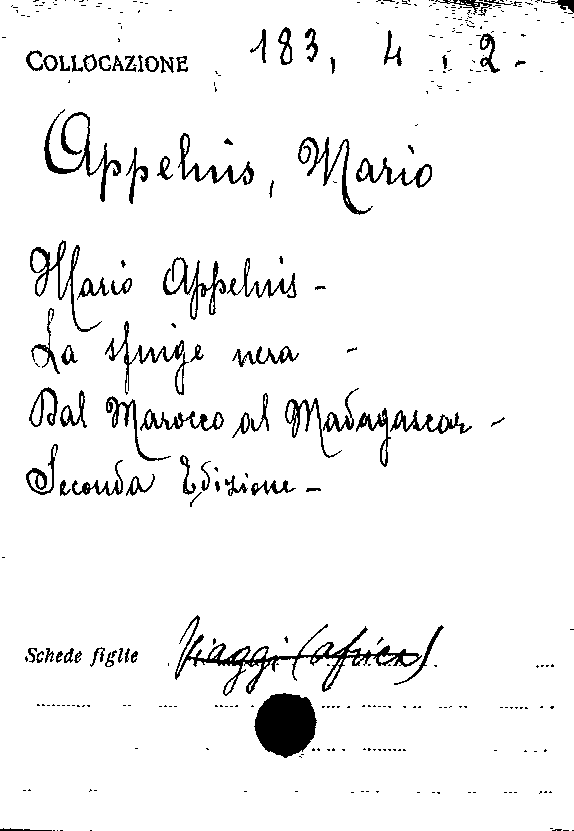 COLLOCAZIONE 183, 4, 2.
Appelius, Mario
Mario Appelius -
La sfinge nera -
Dal Marocco al Madagascar -
Seconda Edizione -
Schede figlie Viaggi (Africa)